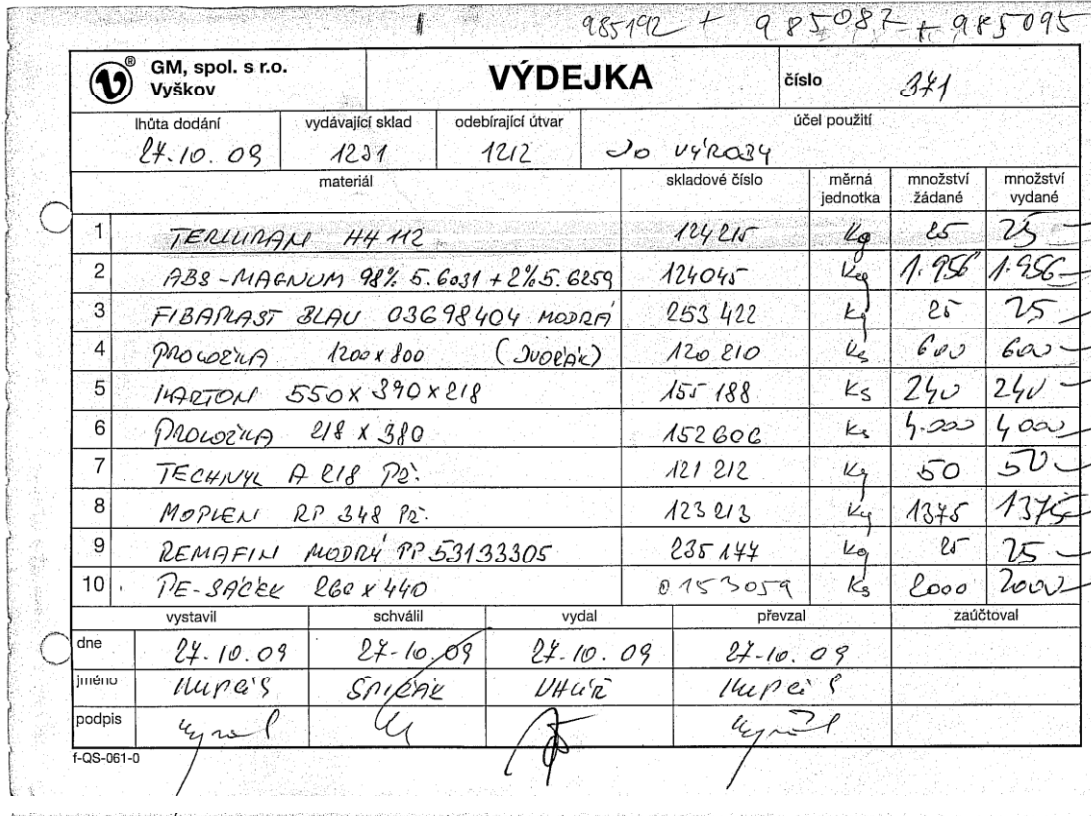 985192 + 985087 + 985095
GM, spol. s r.o.
Vyškov
VÝDEJKA
číslo 371
lhůta dodání vydávající sklad odebírající útvar účel použití
27.10.09 1231 1212 do VÝROBY
materiál skladové číslo měrná jednotka množství žádané množství vydané
1 TERLURAN HH 112 124215 Kg 25 25
2 ABS-MAGNUM 98% 5.6031 + 2% 5.6259 124045 Kg 1.956 1.956
3 FIBAPLAST BLAU 03698404 MODRÁ 253 422 Kg 25 25
4 PROLOŽKA 1200 x 800 (DVOŘÁK) 120 210 Ks 600 600
5 KARTON 550 x 390 x 218 155 188 Ks 240 240
6 PROLOŽKA 218 x 380 152606 Ks 4.000 4000
7 TECHNYL A 218 PŘ. 121 212 Kg 50 50
8 MOPLEN RP 348 PŘ. 123 213 Kg 1375 1375
9 REMAFIN MODRÝ PP 53133305 235 177 Kg 25 25
10 PE-SÁČEK 260 x 440 0153059 Ks 2000 2000
vystavil schválil vydal převzal zaúčtoval
dne 27.10.09 27.10.09 27.10.09 27.10.09
jméno UHLÍŘ
podpis
f-QS-061-0